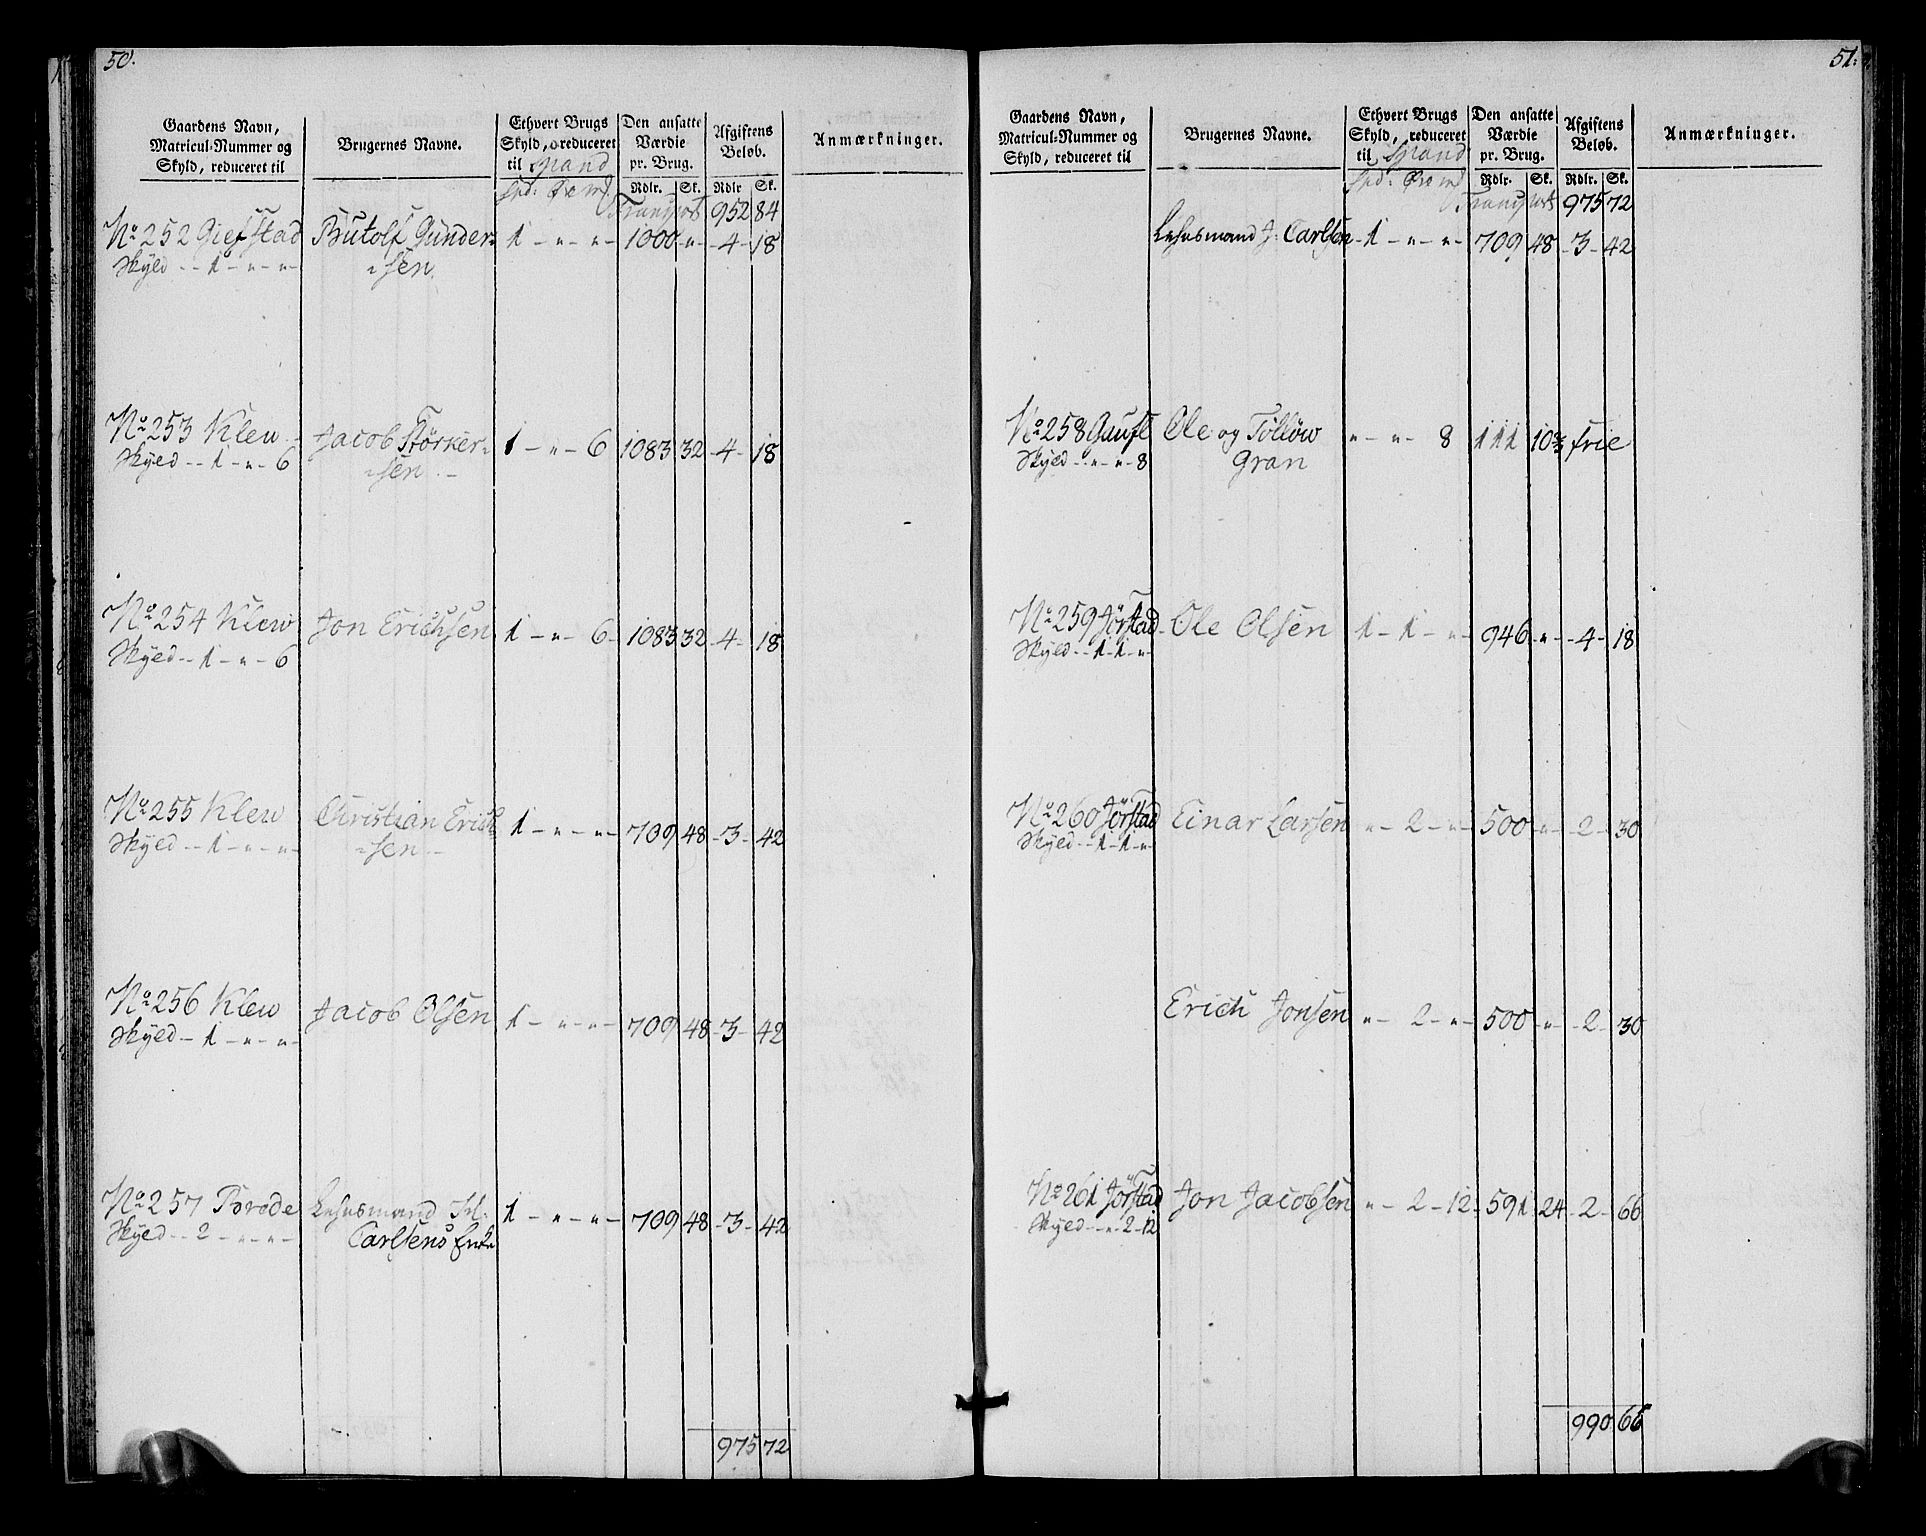 50.
Gaardens Navn,
Matricul-Nummer og
Skyld, reduceret til
Brugernes Navne.
Ethvert Brugs
Skyld, reduceret
til Spand
Spd: Øre md
Den ansatte
Værdie
pr. Brug.
Rdlr. Sk.
Afgiftens
Beløb.
Rdlr Sk.
Anmærkninger.
Transport 952 84
No 252 Giefstad Brutolf Gunder- 1 - " - " - 1000 " - 4 - 18
Skyld - - 1 - " - " - sen
No 253 Klew Jacob Störker- 1 - " - 6 1083 32 - 4 - 18
Skyld - - 1 - " - 6 sen
No 254 Klew Jon Erichsen 1 - " - 6 - 1083 32 - 4 - 18
Skyld - - 1 - " - 6
No 255 Klew Christian Erich 1 - " - " - 709 48 - 3 - 42
Skyld - - 1 - " - " - sen
No 256 Klew Jacob Olsen 1 - " - " - 709 48 - 3 - 42
Skyld - 1 - " - " -
No 257 Brøde Lehnsmand 1 - " - " - 709 48 - 3 - 42
Skyld - - 2 - " - " - Carlsens Enke
975 72
51.
Gaardens Navn,
Matricul-Nummer og
Skyld, reduceret til
Brugernes Navne.
Ethvert Brugs
Skyld, reduceret
til Spand
Spd: Øre md
Den ansatte
Værdie
pr. Brug.
Rdlr. Sk.
Afgiftens
Beløb.
Rdlr. Sk.
Anmærkninger.
Transport 975 72
Lehnsmand J: Carlsen 1 - " - " - 709 48 - 3 - 42
No 258 Gaufl Ole og Tolløw " - " - 8 111 10⅔ frie
Skyld - " - " - 8 Gran
No 259 Jörstad Ole Olsen 1 - 1 - " - 946 " - 4 - 18
Skyld - - 1 - 1 - "
No 260 Jörstad Einar Larsen " - 2 - " - 500 " - 2 - 30
Skyld - - 1 - 1 - "
Erich Jonsen " - 2 - " - 500 " - 2 - 30
No 261 Jörstad Jon Jacobsen " - 2 - 12 - 591 24 - 2 - 66
Skyld - - " - 2 - 12
990 66